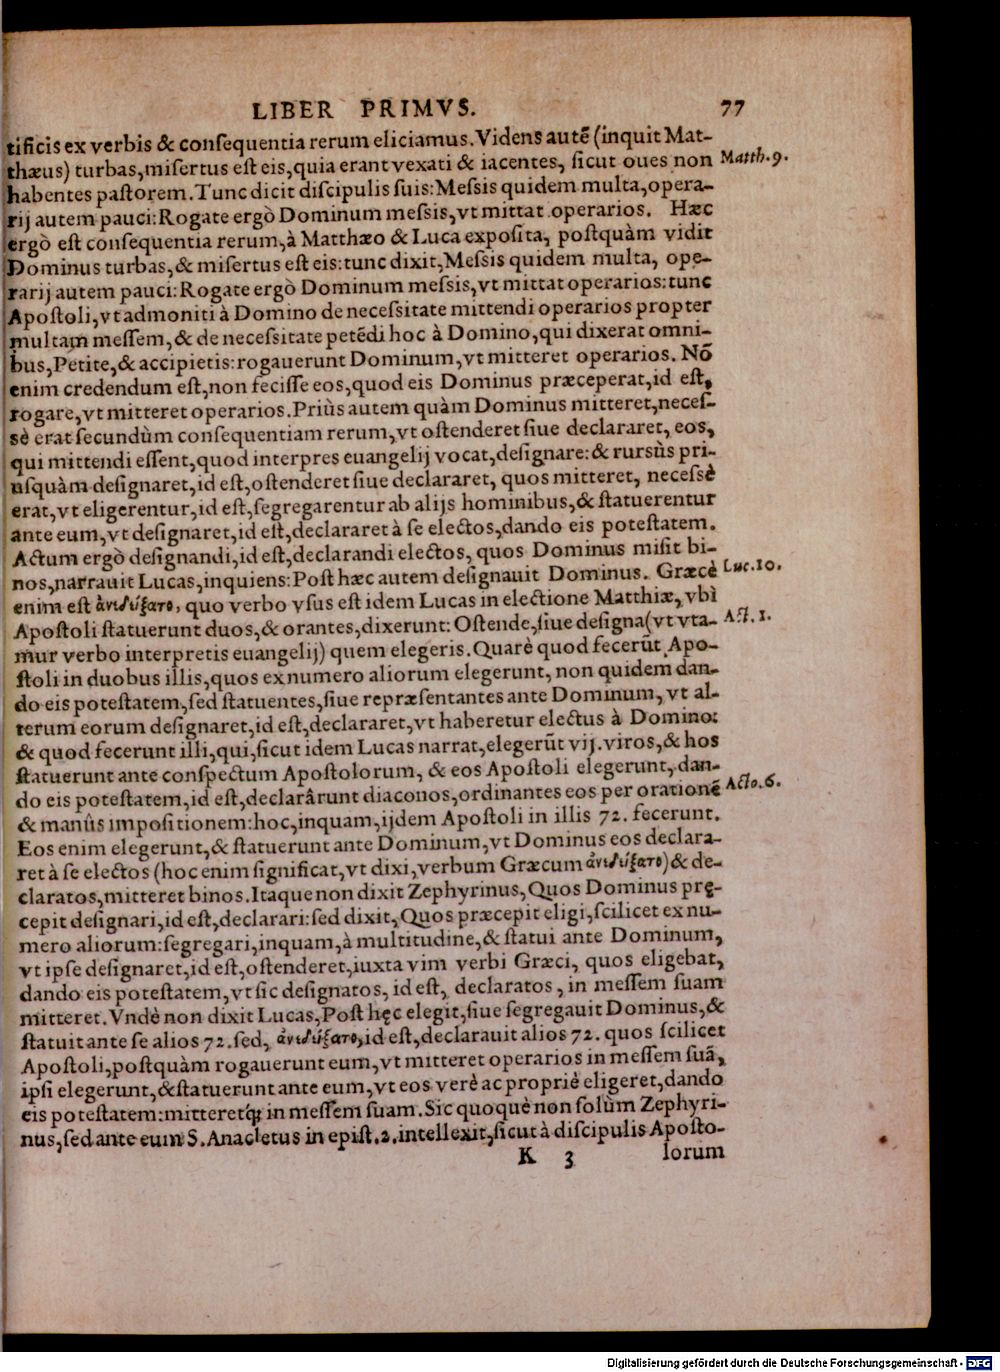 LIBER PRIMVS. 77
tificis ex verbis & conſequentia rerum eliciamus. Videns autē (inquit Mat-
thæus) turbas, miſertus eſt eis, quia erant vexati & iacentes, ſicut oues non Matth. 9.
habentes paſtorem. Tunc dicit diſcipulis ſuis: Meſsis quidem multa, opera-
rij autem pauci: Rogate ergò Dominum meſsis, vt mittat operarios. Hæc
ergò eſt conſequentia rerum, à Matthæo & Luca expoſita, poſtquàm vidit
Dominus turbas, & miſertus eſt eis: tunc dixit, Meſsis quidem multa, ope-
rarij autem pauci: Rogate ergò Dominum meſsis, vt mittat operarios: tunc
Apoſtoli, vt admoniti à Domino de neceſsitate mittendi operarios propter
multam meſſem, & de neceſsitate petēdi hoc à Domino, qui dixerat omni-
bus, Petite, & accipietis: rogauerunt Dominum, vt mitteret operarios. Nō
enim credendum eſt, non feciſſe eos, quod eis Dominus præceperat, id eſt,
rogare, vt mitteret operarios. Priùs autem quàm Dominus mitteret, neceſ-
sè erat ſecundùm conſequentiam rerum, vt oſtenderet ſiue declararet, eos,
qui mittendi eſſent, quod interpres euangelij vocat, deſignare: & rursùs pri-
uſquàm deſignaret, id eſt, oſtenderet ſiue declararet, quos mitteret, neceſsè
erat, vt eligerentur, id eſt, ſegregarentur ab alijs hominibus, & ſtatuerentur
ante eum, vt deſignaret, id eſt, declararet à ſe electos, dando eis poteſtatem.
Actum ergò deſignandi, id eſt, declarandi electos, quos Dominus miſit bi-
nos, narrauit Lucas, inquiens: Poſt hæc autem deſignauit Dominus. Græcè Luc. 10.
enim eſt ἀνέδειξατο, quo verbo vſus eſt idem Lucas in electione Matthiæ, vbì
Apoſtoli ſtatuerunt duos, & orantes, dixerunt: Oſtende, ſiue deſigna (vt vta- Act. 1.
mur verbo interpretis euangelij) quem elegeris. Quarè quod fecerūt Apo-
ſtoli in duobus illis, quos ex numero aliorum elegerunt, non quidem dan-
do eis poteſtatem, ſed ſtatuentes, ſiue repræſentantes ante Dominum, vt al-
terum eorum deſignaret, id eſt, declararet, vt haberetur electus à Domino:
& quod fecerunt illi, qui, ſicut idem Lucas narrat, elegerūt vij. viros, & hos
ſtatuerunt ante conſpectum Apoſtolorum, & eos Apoſtoli elegerunt, dan-
do eis poteſtatem, id eſt, declarârunt diaconos, ordinantes eos per orationē Acto. 6.
& manûs impoſitionem: hoc, inquam, ijdem Apoſtoli in illis 72. fecerunt.
Eos enim elegerunt, & ſtatuerunt ante Dominum, vt Dominus eos declara-
ret à ſe electos (hoc enim ſignificat, vt dixi, verbum Græcum ἀνέδειξατο) & de-
claratos, mitteret binos. Itaque non dixit Zephyrinus, Quos Dominus prę-
cepit deſignari, id eſt, declarari: ſed dixit, Quos præcepit eligi, ſcilicet ex nu-
mero aliorum: ſegregari, inquam, à multitudine, & ſtatui ante Dominum,
vt ipſe deſignaret, id eſt, oſtenderet, iuxta vim verbi Græci, quos eligebat,
dando eis poteſtatem, vt ſic deſignatos, id eſt, declaratos, in meſſem ſuam
mitteret. Vndè non dixit Lucas, Poſt hęc elegit, ſiue ſegregauit Dominus, &
ſtatuit ante ſe alios 72. ſed, ἀνέδειξατο, id eſt, declarauit alios 72. quos ſcilicet
Apoſtoli, poſtquàm rogauerunt eum, vt mitteret operarios in meſſem ſuā,
ipſi elegerunt, & ſtatuerunt ante eum, vt eos verè ac propriè eligeret, dando
eis poteſtatem: mitteretq́; in meſſem ſuam. Sic quoquè non ſolùm Zephyri-
nus, ſed ante eum S. Anacletus in epiſt. 2. intellexit, ſicut à diſcipulis Apoſto-
K 3 lorum
Digitalisierung gefördert durch die Deutsche Forschungsgemeinschaft - DFG